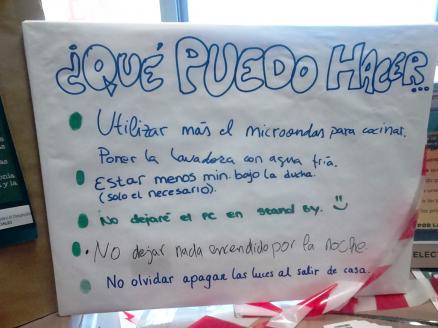 ¿QUÉ PUEDO HACER...
Utilizar más el microondas para cocinar.
Poner la lavadora con agua fría.
Estar menos min. bajo la ducha.
(solo el necesario).
No dejaré el PC en stand by.
No dejar nada encendido por la noche.
No olvidar apagar las luces al salir de casa.
ELECT